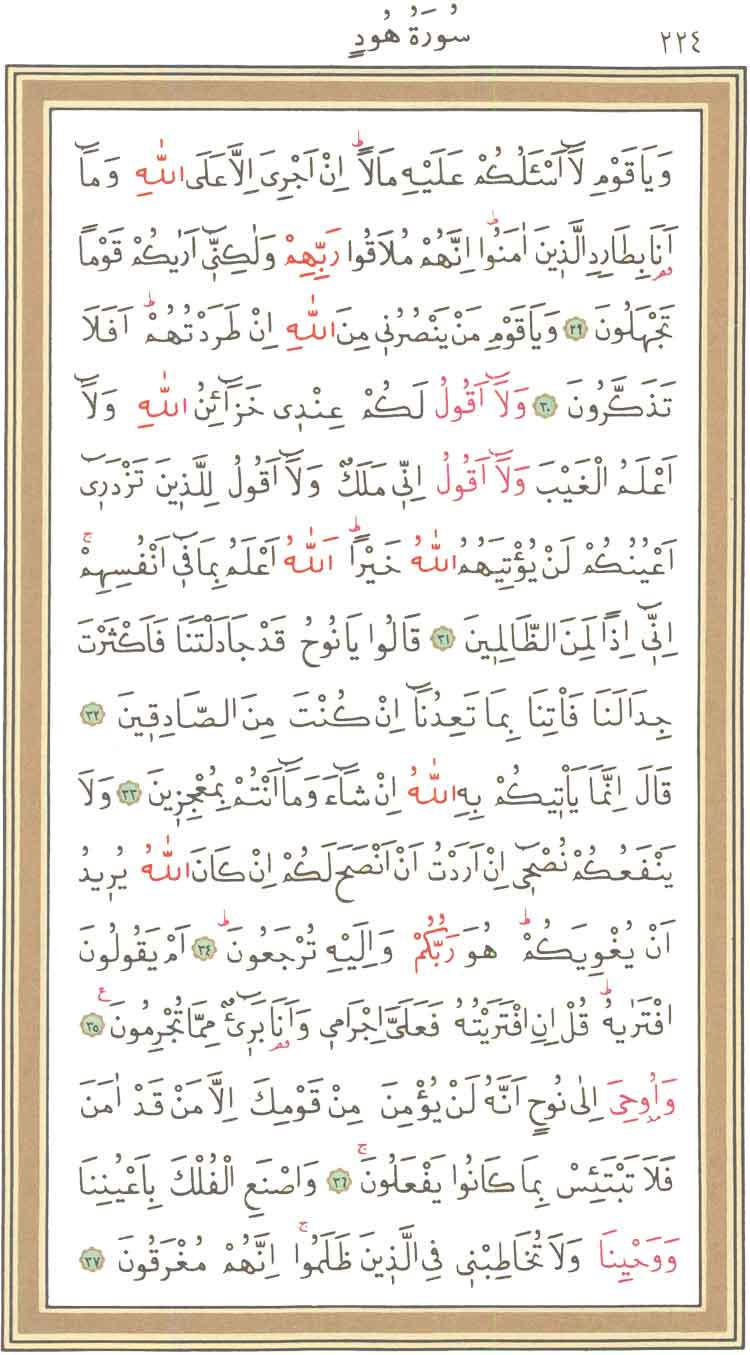 ٢٢٤ سُورَةُ هُودٍ
وَيَا قَوْمِ لَٓا اَسْـَٔلُكُمْ عَلَيْهِ مَالًاۜ اِنْ اَجْرِيَ اِلَّا عَلَى اللّٰهِ وَمَٓا
اَنَا۬ بِطَارِدِ الَّذ۪ينَ اٰمَنُواۜ اِنَّهُمْ مُلَاقُوا رَبِّهِمْ وَلٰكِنّ۪ٓي اَرٰيكُمْ قَوْمًا
تَجْهَلُونَ ﴿٢٩﴾ وَيَا قَوْمِ مَنْ يَنْصُرُن۪ي مِنَ اللّٰهِ اِنْ طَرَدْتُهُمْۜ اَفَلَا
تَذَكَّرُونَ ﴿٣٠﴾ وَلَٓا اَقُولُ لَكُمْ عِنْد۪ي خَزَٓائِنُ اللّٰهِ وَلَٓا
اَعْلَمُ الْغَيْبَ وَلَٓا اَقُولُ اِنّ۪ي مَلَكٌ وَلَٓا اَقُولُ لِلَّذ۪ينَ تَزْدَر۪ٓي
اَعْيُنُكُمْ لَنْ يُؤْتِيَهُمُ اللّٰهُ خَيْرًاۜ اَللّٰهُ اَعْلَمُ بِمَا ف۪ٓي اَنْفُسِهِمْۚ
اِنّ۪ٓي اِذًا لَمِنَ الظَّالِم۪ينَ ﴿٣١﴾ قَالُوا يَا نُوحُ قَدْ جَادَلْتَنَا فَاَكْثَرْتَ
جِدَالَنَا فَأْتِنَا بِمَا تَعِدُنَٓا اِنْ كُنْتَ مِنَ الصَّادِق۪ينَ ﴿٣٢﴾
قَالَ اِنَّمَا يَأْت۪يكُمْ بِهِ اللّٰهُ اِنْ شَٓاءَ وَمَٓا اَنْتُمْ بِمُعْجِز۪ينَ ﴿٣٣﴾ وَلَا
يَنْفَعُكُمْ نُصْح۪ٓي اِنْ اَرَدْتُ اَنْ اَنْصَحَ لَكُمْ اِنْ كَانَ اللّٰهُ يُر۪يدُ
اَنْ يُغْوِيَكُمْۜ هُوَ رَبُّكُمْ وَاِلَيْهِ تُرْجَعُونَۜ ﴿٣٤﴾ اَمْ يَقُولُونَ
افْتَرٰيهُۜ قُلْ اِنِ افْتَرَيْتُهُ فَعَلَيَّ اِجْرَام۪ي وَاَنَا۬ بَر۪ٓيءٌ مِمَّا تُجْرِمُونَ ع ﴿٣٥﴾
وَاُو۫حِيَ اِلٰى نُوحٍ اَنَّهُ لَنْ يُؤْمِنَ مِنْ قَوْمِكَ اِلَّا مَنْ قَدْ اٰمَنَ
فَلَا تَبْتَئِسْ بِمَا كَانُوا يَفْعَلُونَۚ ﴿٣٦﴾ وَاصْنَعِ الْفُلْكَ بِاَعْيُنِنَا
وَوَحْيِنَا وَلَا تُخَاطِبْن۪ي فِي الَّذ۪ينَ ظَلَمُواۚ اِنَّهُمْ مُغْرَقُونَ ﴿٣٧﴾